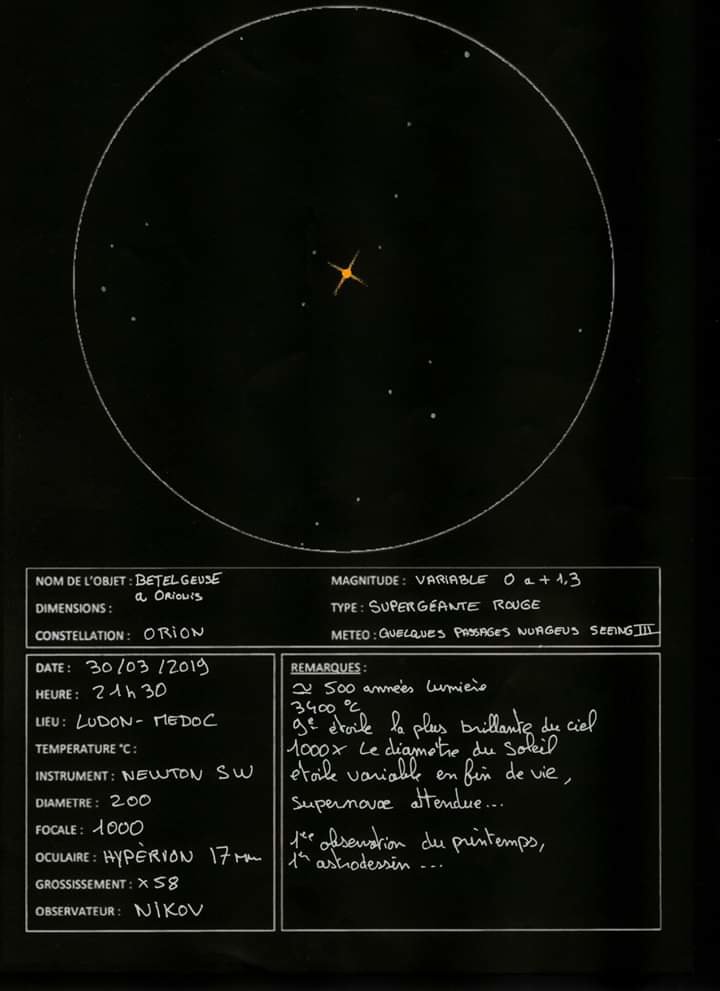 NOM DE L'OBJET : BETELGEUSE
α ORIONIS
DIMENSIONS :
CONSTELLATION : ORION
MAGNITUDE : VARIABLE 0 a + 1,3
TYPE : SUPERGÉANTE ROUGE
METEO : QUELQUES PASSAGES NUAGEUS SEEING III
DATE : 30/03/2019
HEURE : 21h30
LIEU : LUDON-MEDOC
TEMPERATURE °C :
INSTRUMENT : NEWTON SW
DIAMETRE : 200
FOCALE : 1000
OCULAIRE : HYPÈRION 17mm
GROSSISSEMENT : x58
OBSERVATEUR : NIKOV
REMARQUES :
≃ 500 années lumière
3400 °C
9e étoile la plus brillante du ciel
1000x Le diamètre du Soleil
étoile variable en fin de vie,
supernovae attendue...
1ere observation du printemps,
1er astrodessin ...